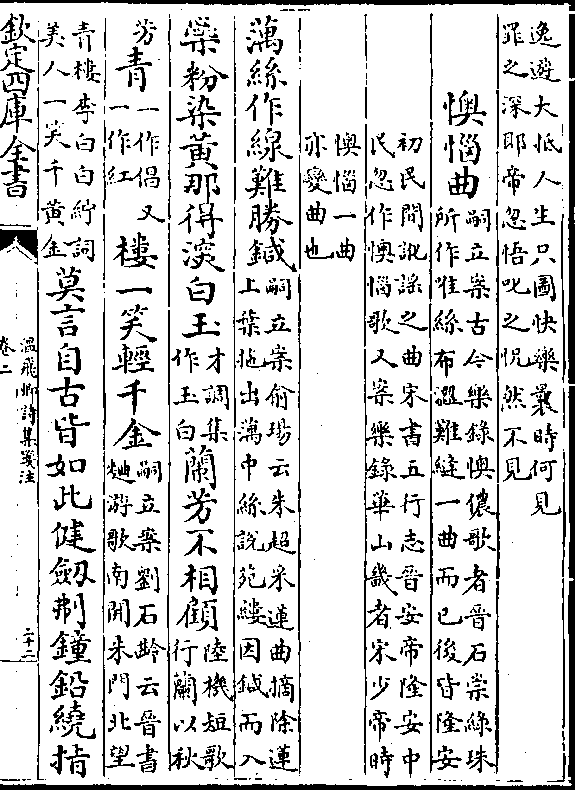 逸遊大抵人生只圖快樂曩時何見
罪之深耶帝忽悟叱之恍然不見
懊惱曲
嗣立案古今樂錄懊儂歌者晉石崇綠珠
所作唯絲布澀難縫一曲而已後皆隆安
初民間訛謠之曲宋書五行志晉安帝隆安中
民忽作懊惱歌又案樂錄華山畿者宋少帝時
懊惱一曲
亦變曲也
藕絲作線難勝鍼
嗣立案俞瑒云朱超采蓮曲摘除蓮
上葉拖出藕中絲說苑縷因鍼而入
蘂粉染黃那得深
白玉
才調集
作玉白
蘭芳不相顧
陸機短歌
行蘭以秋
芳
青
一作倡又
一作紅
樓一笑輕千金
嗣立案劉石齡云晉書
麯游歌南開朱門北望
青樓李白白紵詞
美人一笑千黃金
莫言自古皆如此健劒刜鐘鉛繞指
欽定四庫全書
溫飛卿詩集箋注
卷二
二十二